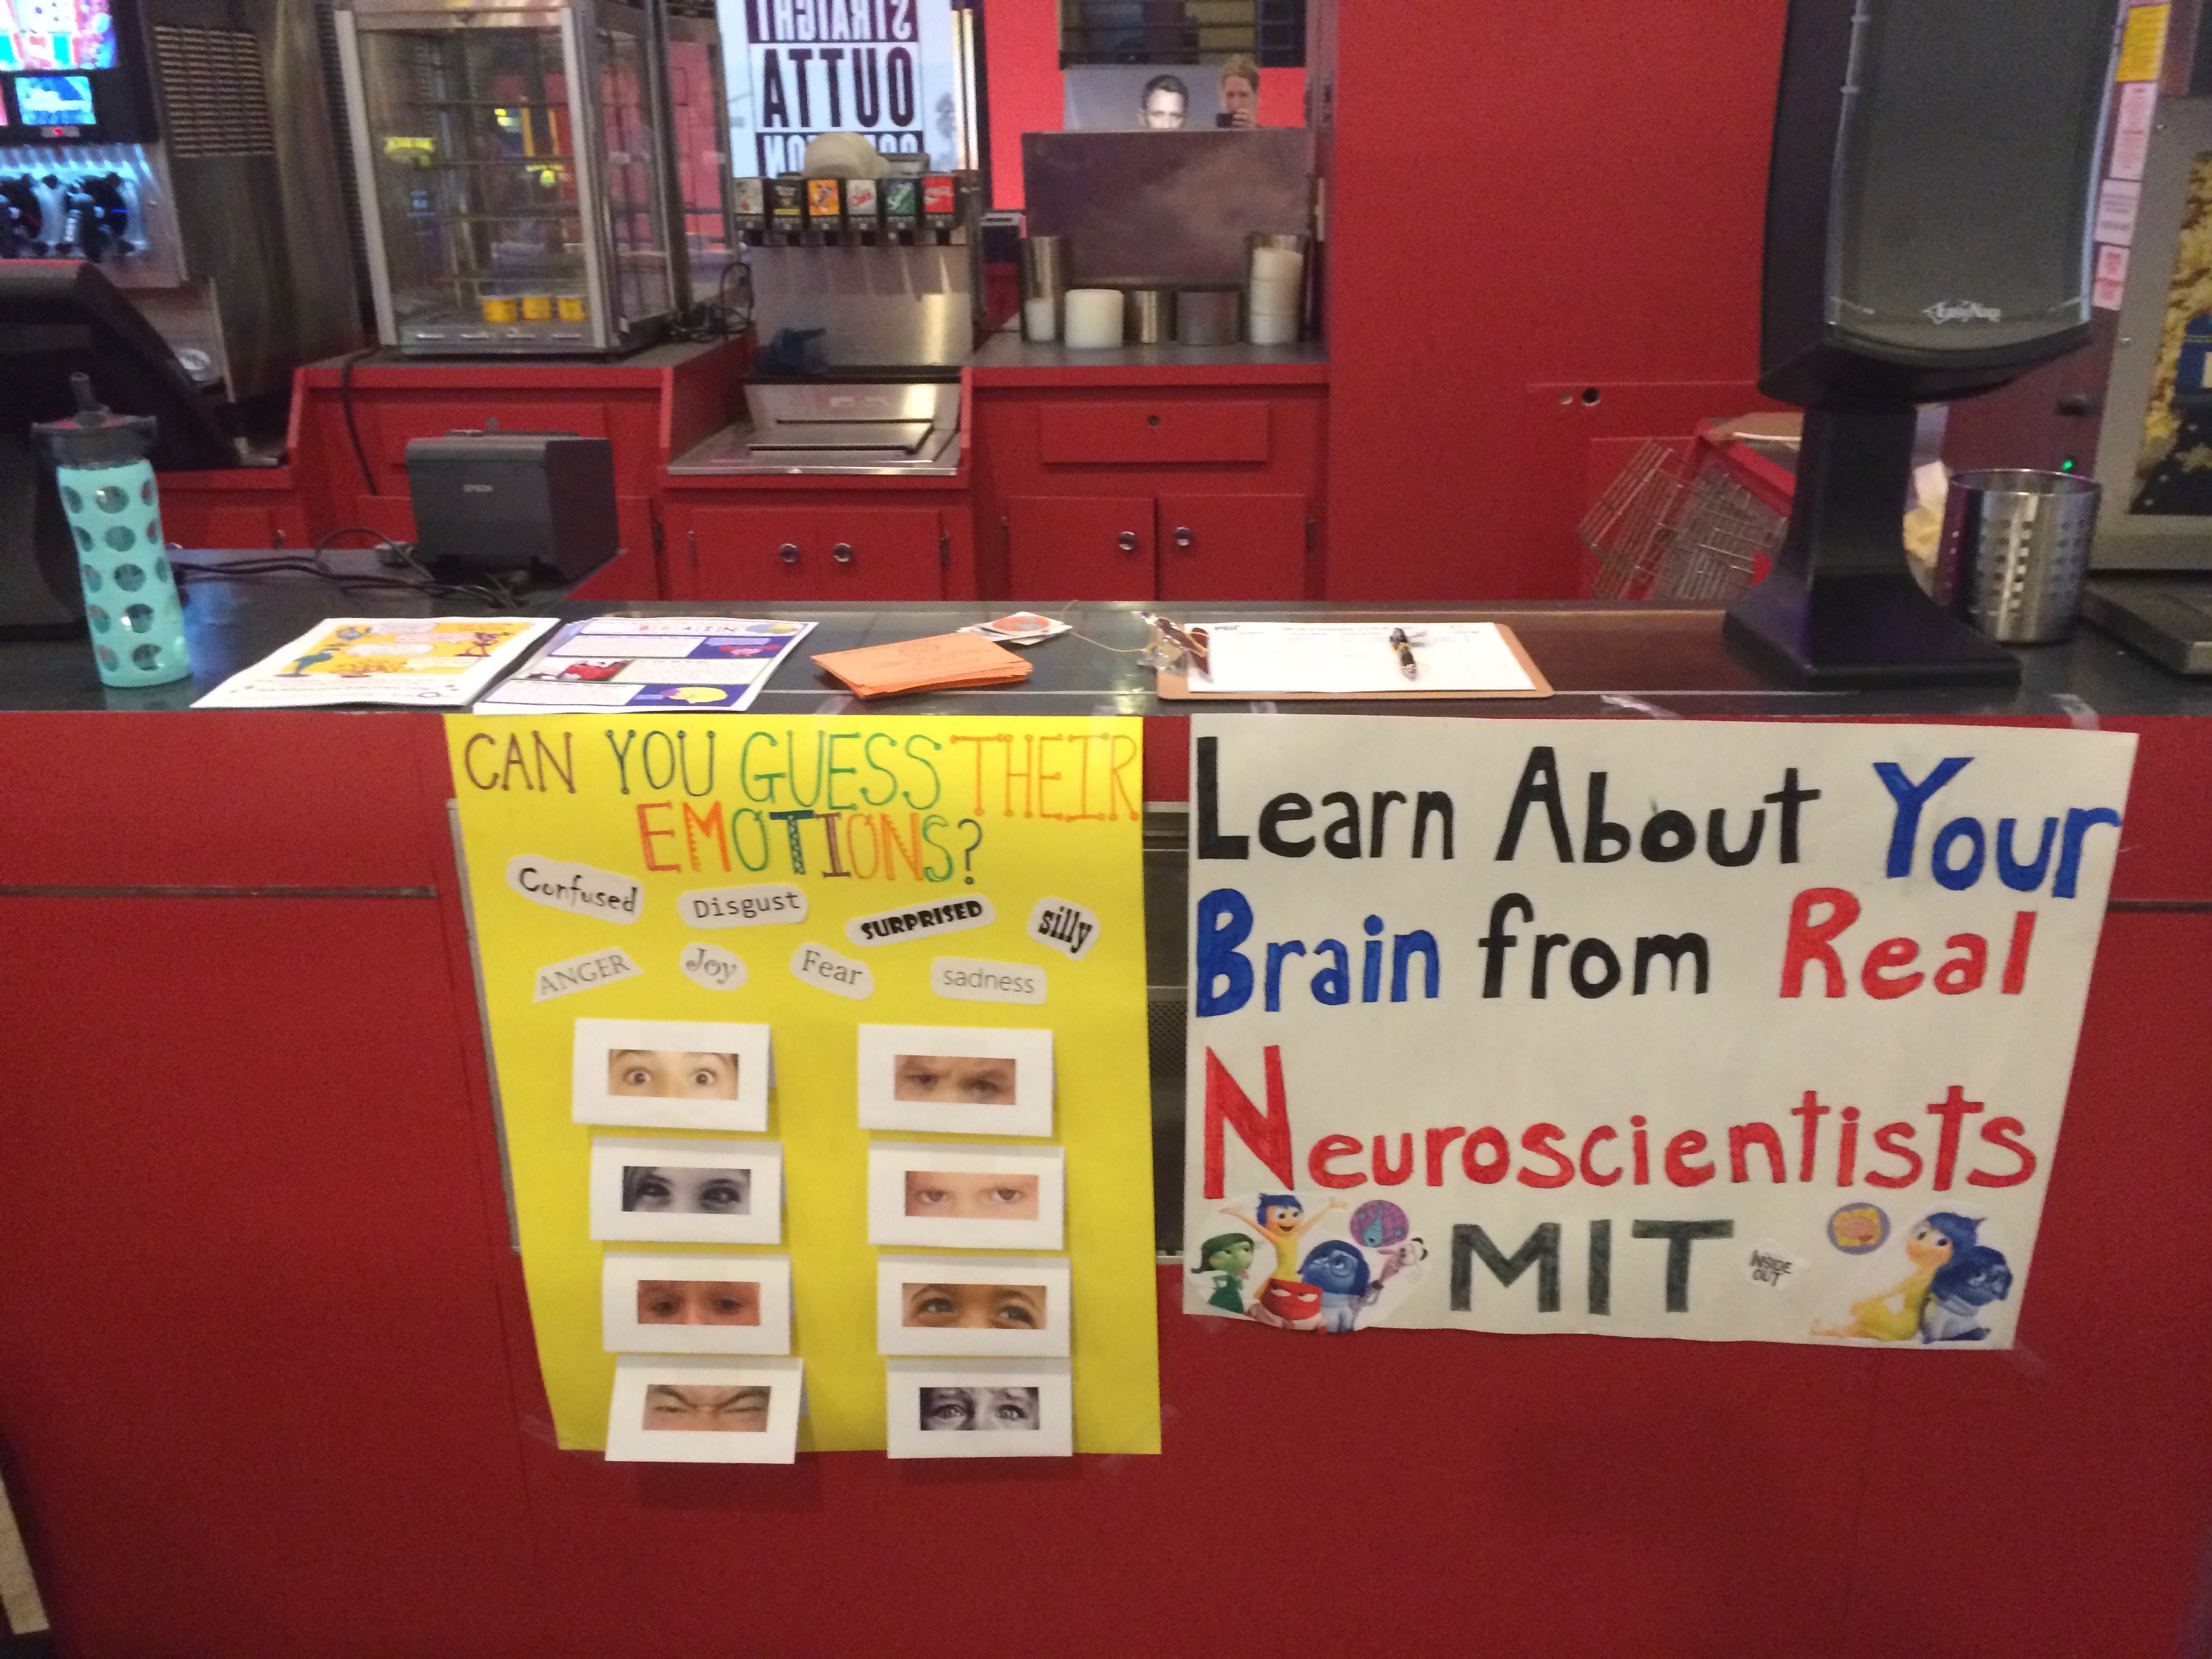 STRAIGHT
OUTTA
EPSON
EasyNap
BRAIN
CAN YOU GUESS THEIR
EMOTIONS?
Confused
Disgust
SURPRISED
silly
ANGER
Joy
Fear
sadness
Learn About Your
Brain from Real
Neuroscientists
MIT
INSIDE
OUT